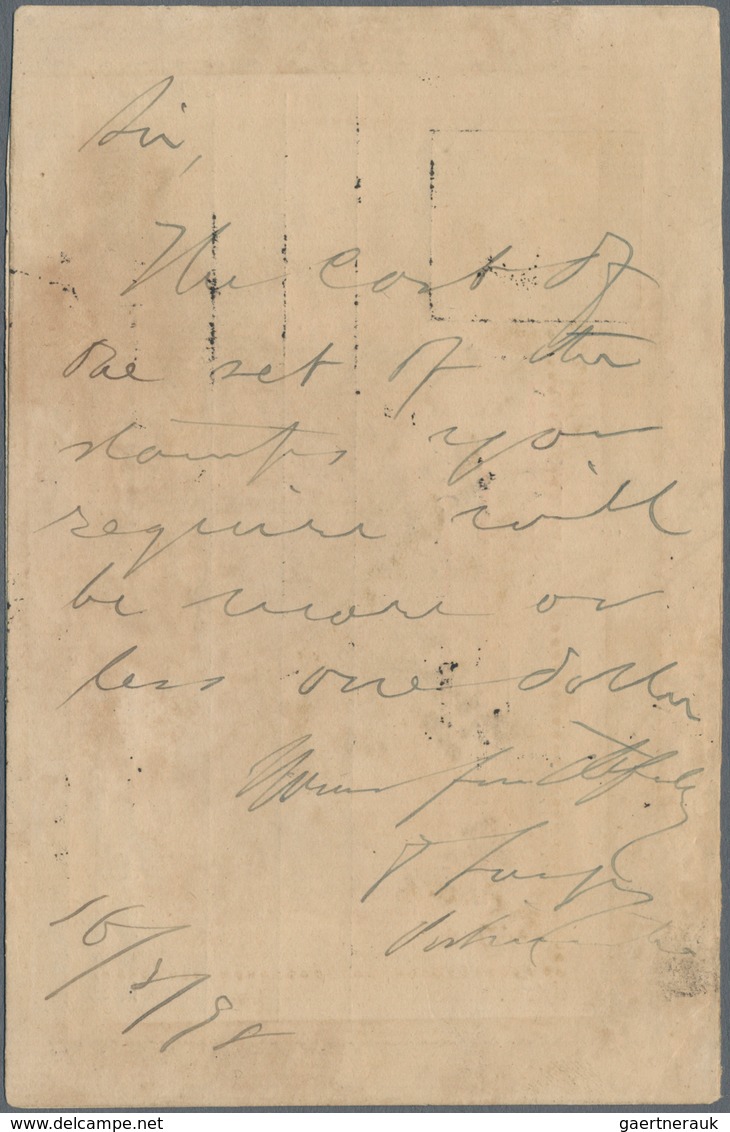 Sir,
The cost of
one set of the
stamps you
require will
be more or
less one dollar
Yours faithfully
16/
gaertnerauk